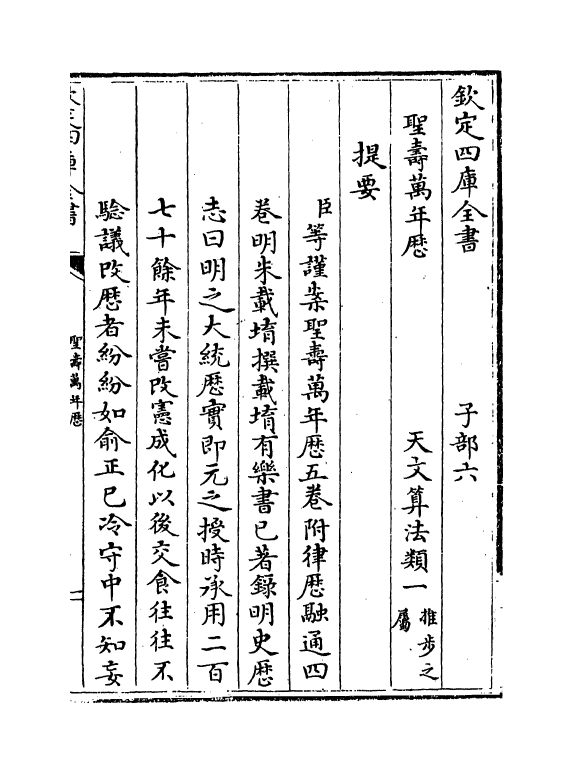 欽定四庫全書　子部六
聖壽萬年厯　天文算法類一推步之屬
提要
臣等謹案聖壽萬年厯五卷附律厯融通四
卷明朱載堉撰載堉有樂書已著錄明史厯
志曰明之大統厯實即元之授時承用二百
七十餘年未嘗改憲成化以後交食往往不
驗議改厯者紛紛如俞正己冷守中不知妄
欽定四庫全書
聖壽萬年厯
一